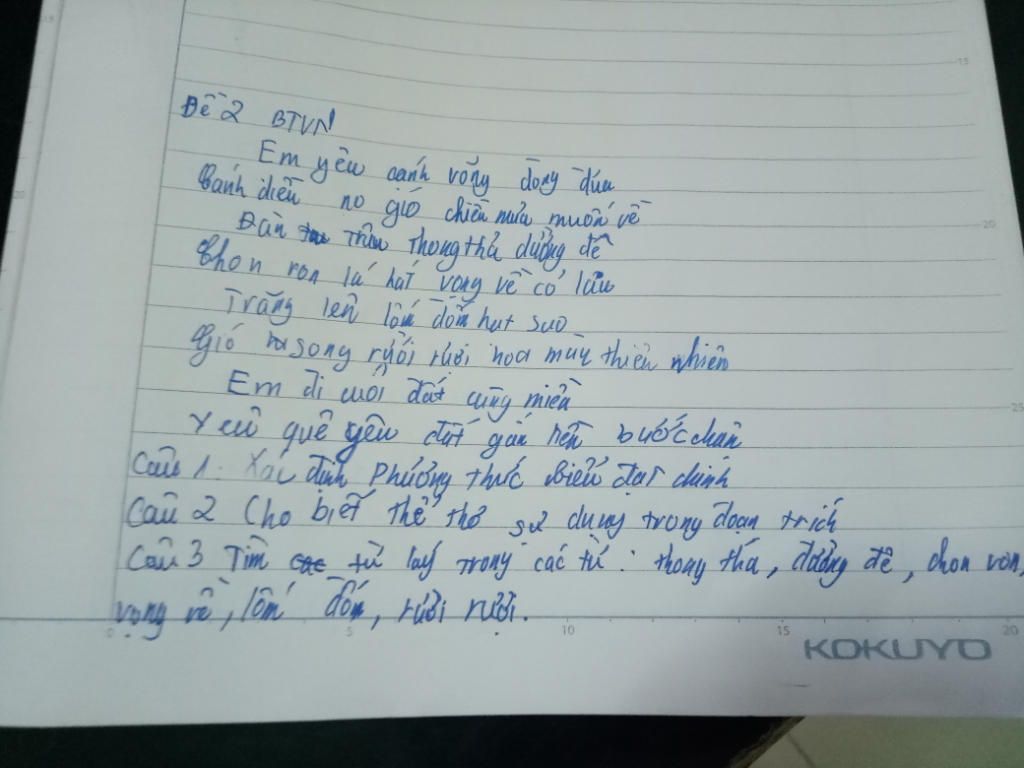 15
Đề 2 BTVN
Em yêu cánh võng đong đưa
Cánh diều no gió chiều mưa muốn về
20
Đàn trâu thong thả đường đê
Chon von lá hát vọng về cỏ lau
Trăng lên lốm đốm hạt sao
Gió song rười rượi hoa màu thiên nhiên
Em đi cuối đất cùng miền
25
Yêu quê yêu đất gắn liền bước chân
Câu 1. Xác định phương thức biểu đạt chính
Câu 2 Cho biết thể thơ sử dụng trong đoạn trích
Câu 3 Tìm từ láy trong các từ: thong thả, đường đê, chon von,
vọng về, lốm đốm, rười rượi.
0 5 10 15 20
KOKUYO